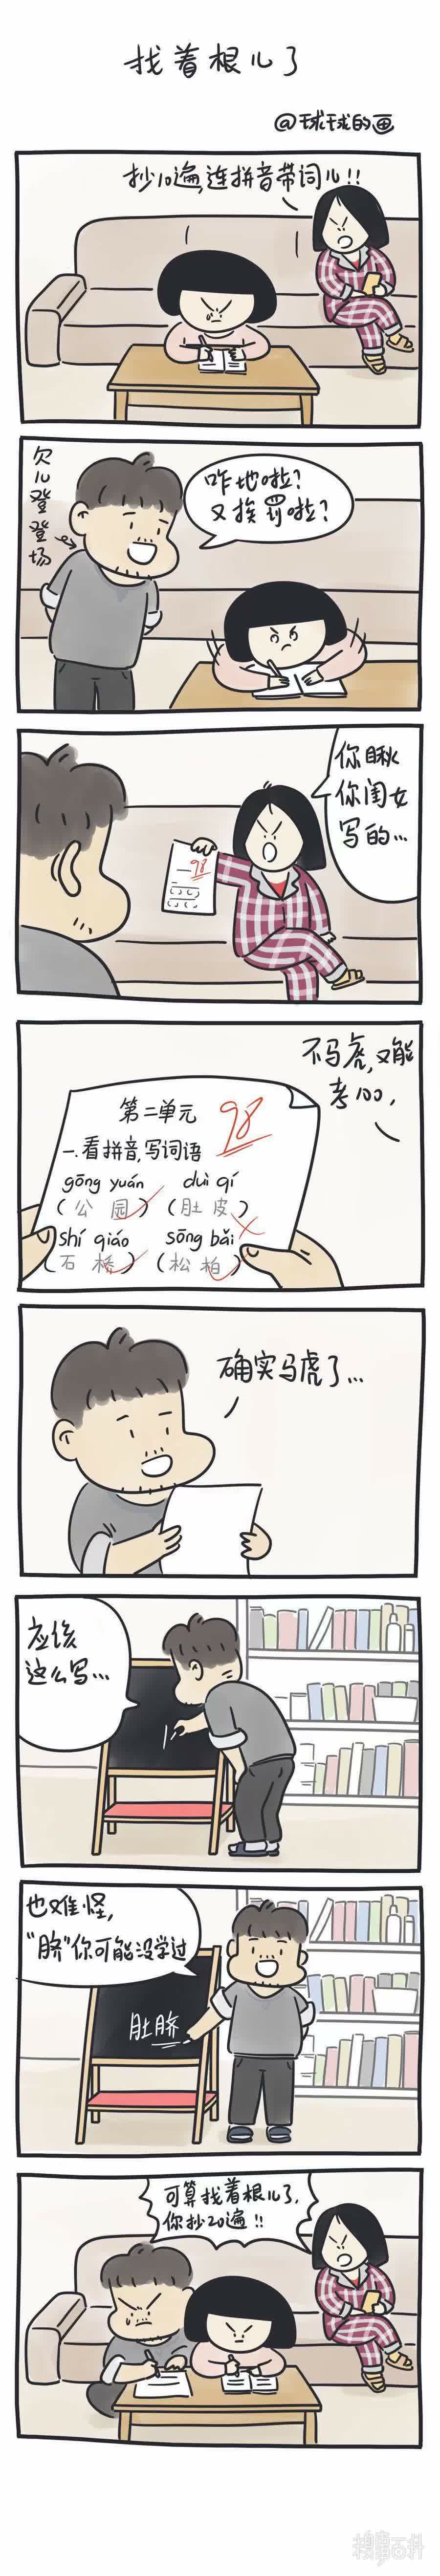 找着根儿了
@球球的画
抄10遍,连拼音带词儿!!
欠儿登登场
咋地啦?
又挨罚啦?
98
你瞅
你闺女
写的...
不马虎,又能
考100,
第二单元
98
一.看拼音,写词语
gōng yuán duì qí
(公园) (肚皮)
shí qiáo sōng bǎi
(石桥) (松柏)
确实马虎了...
应该
这么写...
也难怪,
“脐”你可能没学过
肚脐
可算找着根儿了,
你抄20遍!!
搜狐百科